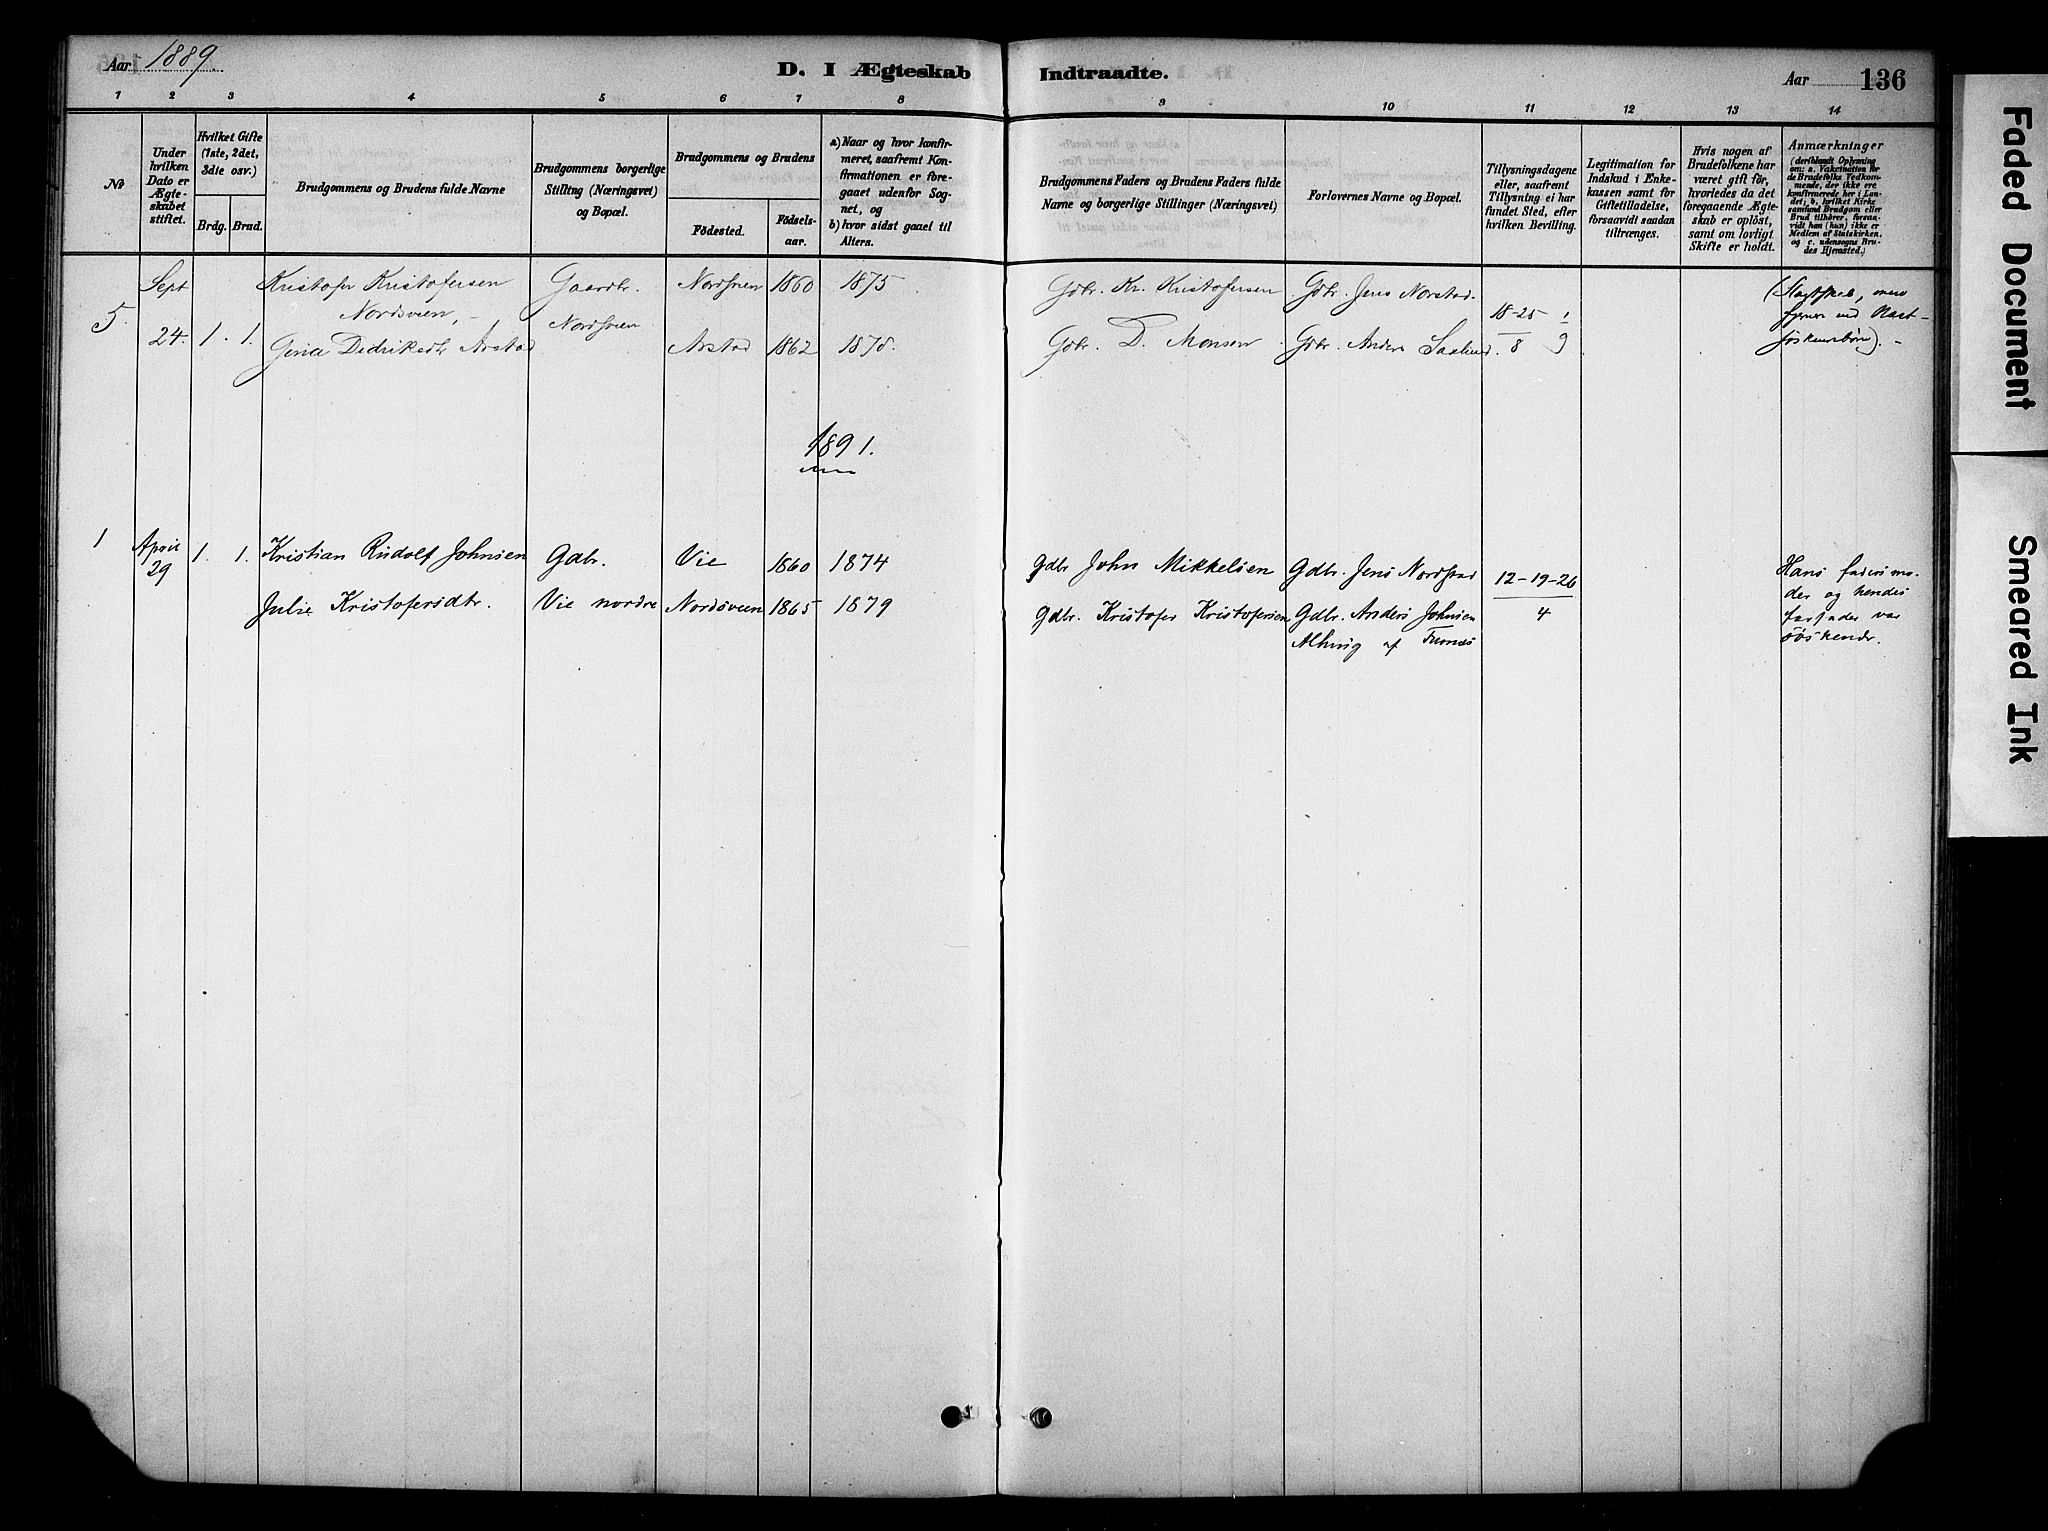 Aar 1889.
D. I Ægteskab Indtraadte.
Aar 136
1 2 3 4 5 6 7 8 9 10 11 12 13 14
No
Under hvilken Dato er Ægteskabet stiftet.
Hvilket Gifte (1ste, 2det, 3die osv.)
Brdg. Brud.
Brudgommens og Brudens fulde Navne
Brudgommens borgerlige Stilling (Næringsvei) og Bopæl.
Brudgommens og Brudens
Födested.
Födselsaar.
a) Naar og hvor konfirmeret, saafremt Konfirmationen er foregaaet udenfor Sognet, og
b) hvor sidst gaaet til Alters.
Brudgommens Faders og Brudens Faders fulde Navne og borgerlige Stillinger (Næringsvei)
Forlovernes Navne og Bopæl.
Tillysningsdagene eller, saafremt Tillysning ei har fundet Sted, efter hvilken Bevilling.
Legitimation for Indskud i Enkekassen samt for Giftetilladelse, forsaavidt saadan tiltrænges.
Hvis nogen af Brudefolkene har været gift för, hvorledes da det foregaaende Ægteskab er oplöst, samt om lovligt Skifte er holdt.
Anmærkninger
(deriblandt Oplysning om: a. Vakcination for de Brudefolks Vedkommende, der ikke ere konfirmerede her i Landet; b. hvilket Kirkesamfund Brudgom eller Brud tilhörer, forsaavidt han (hun) ikke er Medlem af Statskirken, og c. udensogns Brudes Hjemsted.)
5. Sept 24. 1. 1.
Kristofer Kristofersen Nordsveen, -
Gaardbr. Nordsveen
Nordsveen 1860 1875
Gdbr. Kr. Kristofersen
Gdbr. Jens Norstad.
18-25 1
8 9
(Slagtskab, men
fjernere end Næst-
søskendebørn). -
Didriksdtr Arstad
Arstad 1862 1878.
Gdbr. D. Monsen
Gdbr. Anders
1891.
1 April 29 1. 1.
Kristian Rudolf Johnsen
Gdbr.
Vie 1860 1874
Gdbr John Mikkelsen
Gdbr. Jens Nordstad
12-19-26
4
Hans farsmo-
der og hendes
farfader var
söskende.
Julie Kristofersdtr.
Vie nordre
Nordsveen 1865 1879
Gdbr. Kristofer Kristofersen
Gdbr. Anders Johnsen
Alhaug af Furnæs
Faded Document
Smeared Ink